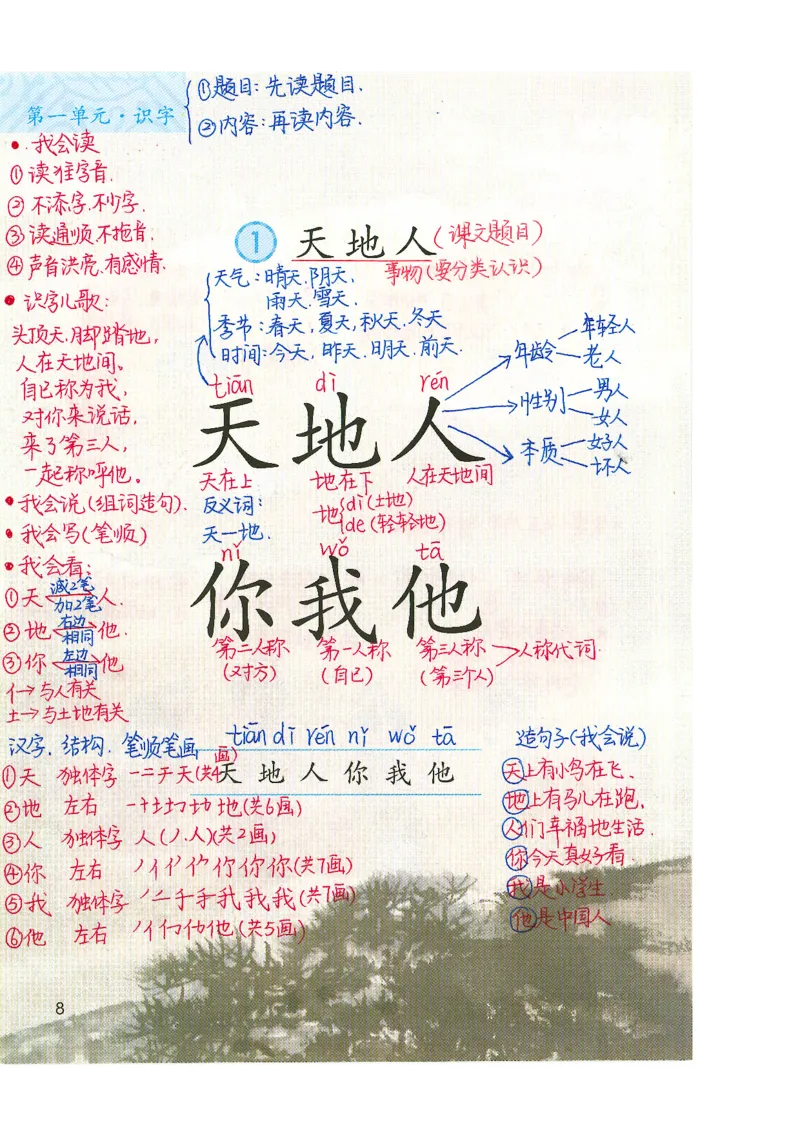 第一单元·识字
①题目:先读题目.
②内容:再读内容.
• 我会读
①读准字音.
②不添字.不少字.
③读通顺.不拖音.
④声音洪亮.有感情.
• 识字儿歌:
头顶天.脚踏地,
人在天地间。
自己称为我,
对你来说话,
来了第三人,
一起称呼他。
• 我会说(组词造句).
• 我会写(笔顺)
• 我会看:
①天 减2笔 加2笔 人.
②地 右边 相同 他.
③你 左边 相同 他
亻→与人有关
土→与土地有关
1 天地人(课文题目)
事物(要分类认识)
天气:晴天.阴天、
雨天.雪天.
季节:春天,夏天,秋天.冬天
时间:今天,昨天.明天.前天.
tiān dì rén
天地人
年龄 年轻人 老人
性别 男人 女人
本质 好人 坏人
天在上 地在下 人在天地间
反义词:
天—地.
地 dì(土地)
de(轻轻地)
nǐ wǒ tā
你我他
第二人称 第一人称 第三人称 人称代词.
(对方) (自己) (第三个人)
汉字. 结构. 笔顺笔画
tiān dì rén nǐ wǒ tā
天 地 人 你 我 他
①天 独体字 一二于天(共4画)
②地 左右 地(共6画)
③人 独体字 人(丿.人)(共2画)
④你 左右 你(共7画)
⑤我 独体字 我(共7画)
⑥他 左右 他(共5画)
造句子(我会说)
天上有小鸟在飞、
地上有马儿在跑、
人们幸福地生活.
你今天真好看.
我是小学生
他是中国人
8